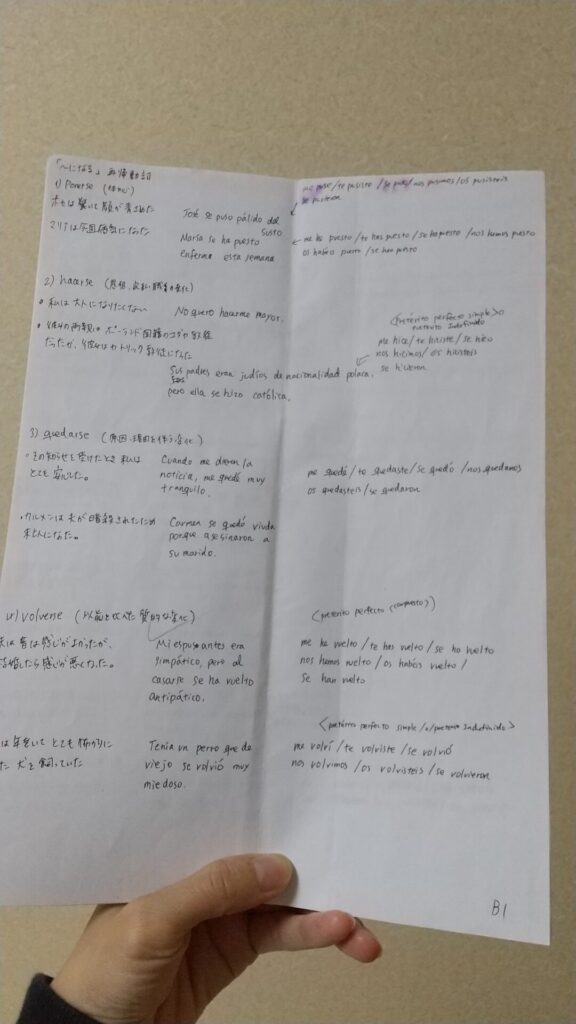 「〜になる」再帰動詞
1) Ponerse
me puse/te pusiste/se puso/nos pusimos/os pusisteis
se pusieron
ホセは驚いて顔が青ざめた
José se puso pálido del
susto
マリアは今週病気になった
María se ha puesto
enferma esta semana
me he puesto/te has puesto/se ha puesto/nos hemos puesto
os habéis puesto/se han puesto
2) hacerse
・私は大人になりたくない
No quiero hacerme mayor.
<pretérito perfecto simple> o
pretérito Indefinido
・彼女の両親は ポーランド国籍のユダヤ教徒
だったが、彼女はカトリック教徒になった
me hice/te hiciste/se hizo
nos hicimos/os hicisteis
se hicieron
Sus padres eran judíos de nacionalidad polaca,
pero ella se hizo católica.
3) quedarse (原因、理由を伴う変化)
・その知らせを受けたとき 私は
とても安心した。
Cuando me dieron la
noticia, me quedé muy
tranquilo.
me quedé/te quedaste/se quedó/nos quedamos
os quedasteis/se quedaron
・カルメンは夫が暗殺されたため
未亡人になった。
Carmen se quedó viuda
porque asesinaron a
su marido.
4) volverse (以前と比べた 質的な変化)
<pretérito perfecto (compuesto)>
夫は昔は感じがよかったが、
結婚したら感じが悪くなった。
Mi esposo antes era
simpático, pero al
casarse se ha vuelto
antipático.
me he vuelto/te has vuelto/se ha vuelto
nos hemos vuelto/os habéis vuelto/
se han vuelto
<pretérito perfecto simple/o/pretérito Indefinido>
は年をとって とても怖がりに
た 犬を飼っていた
Tenía un perro que de
viejo se volvió muy
miedoso.
me volví/te volviste/se volvió
nos volvimos/os volvisteis/se volvieron
B1